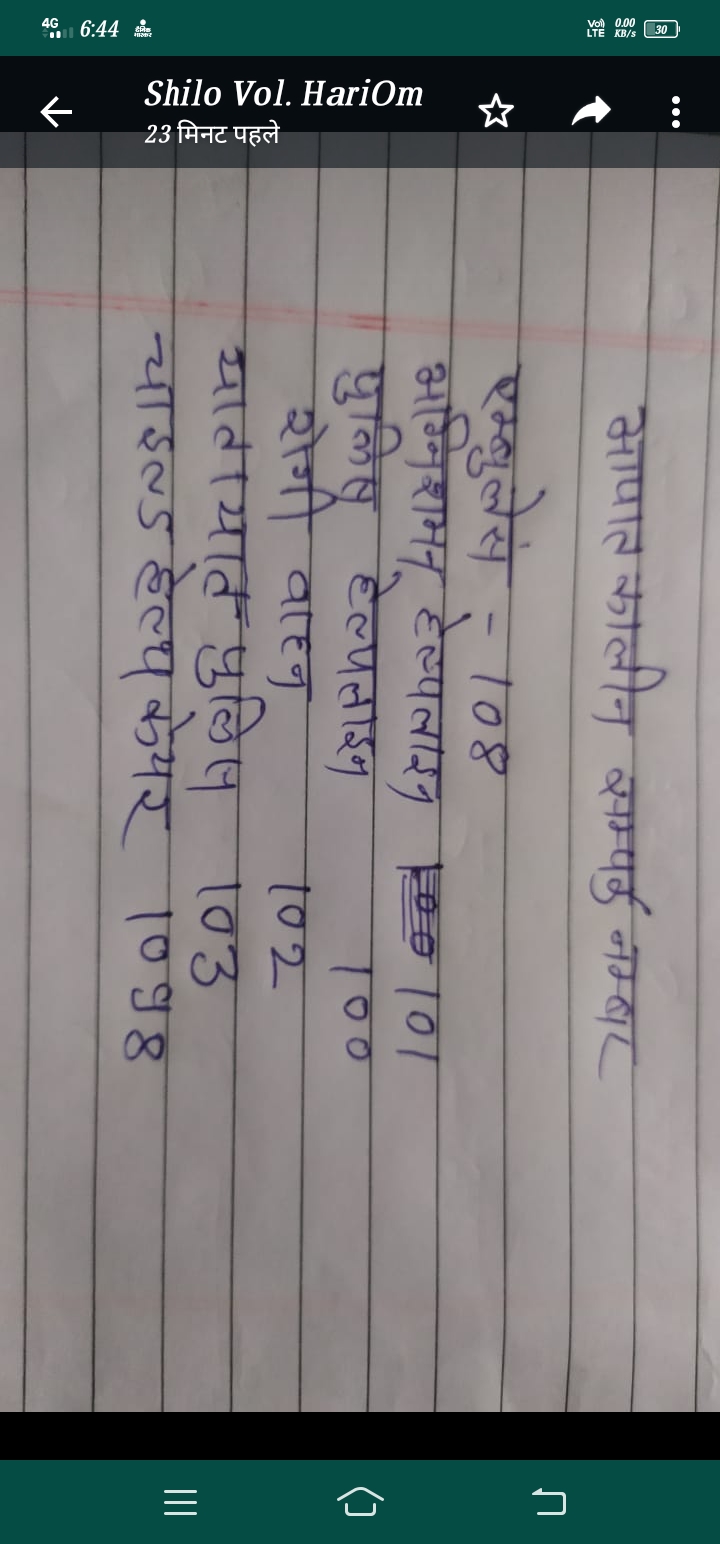 4G 6:44 दैनिक भास्कर Vo) LTE 0.00 KB/s 30
Shilo Vol. HariOm
23 मिनट पहले
आपात कालीन सम्पर्क नम्बर
एम्बुलेंस - 108
अग्निशमन हेल्पलाइन 101
पुलिस हेल्पलाइन 100
रोगी वाहन 102
यातायात पुलिस 103
चाइल्ड हेल्प केयर 1098